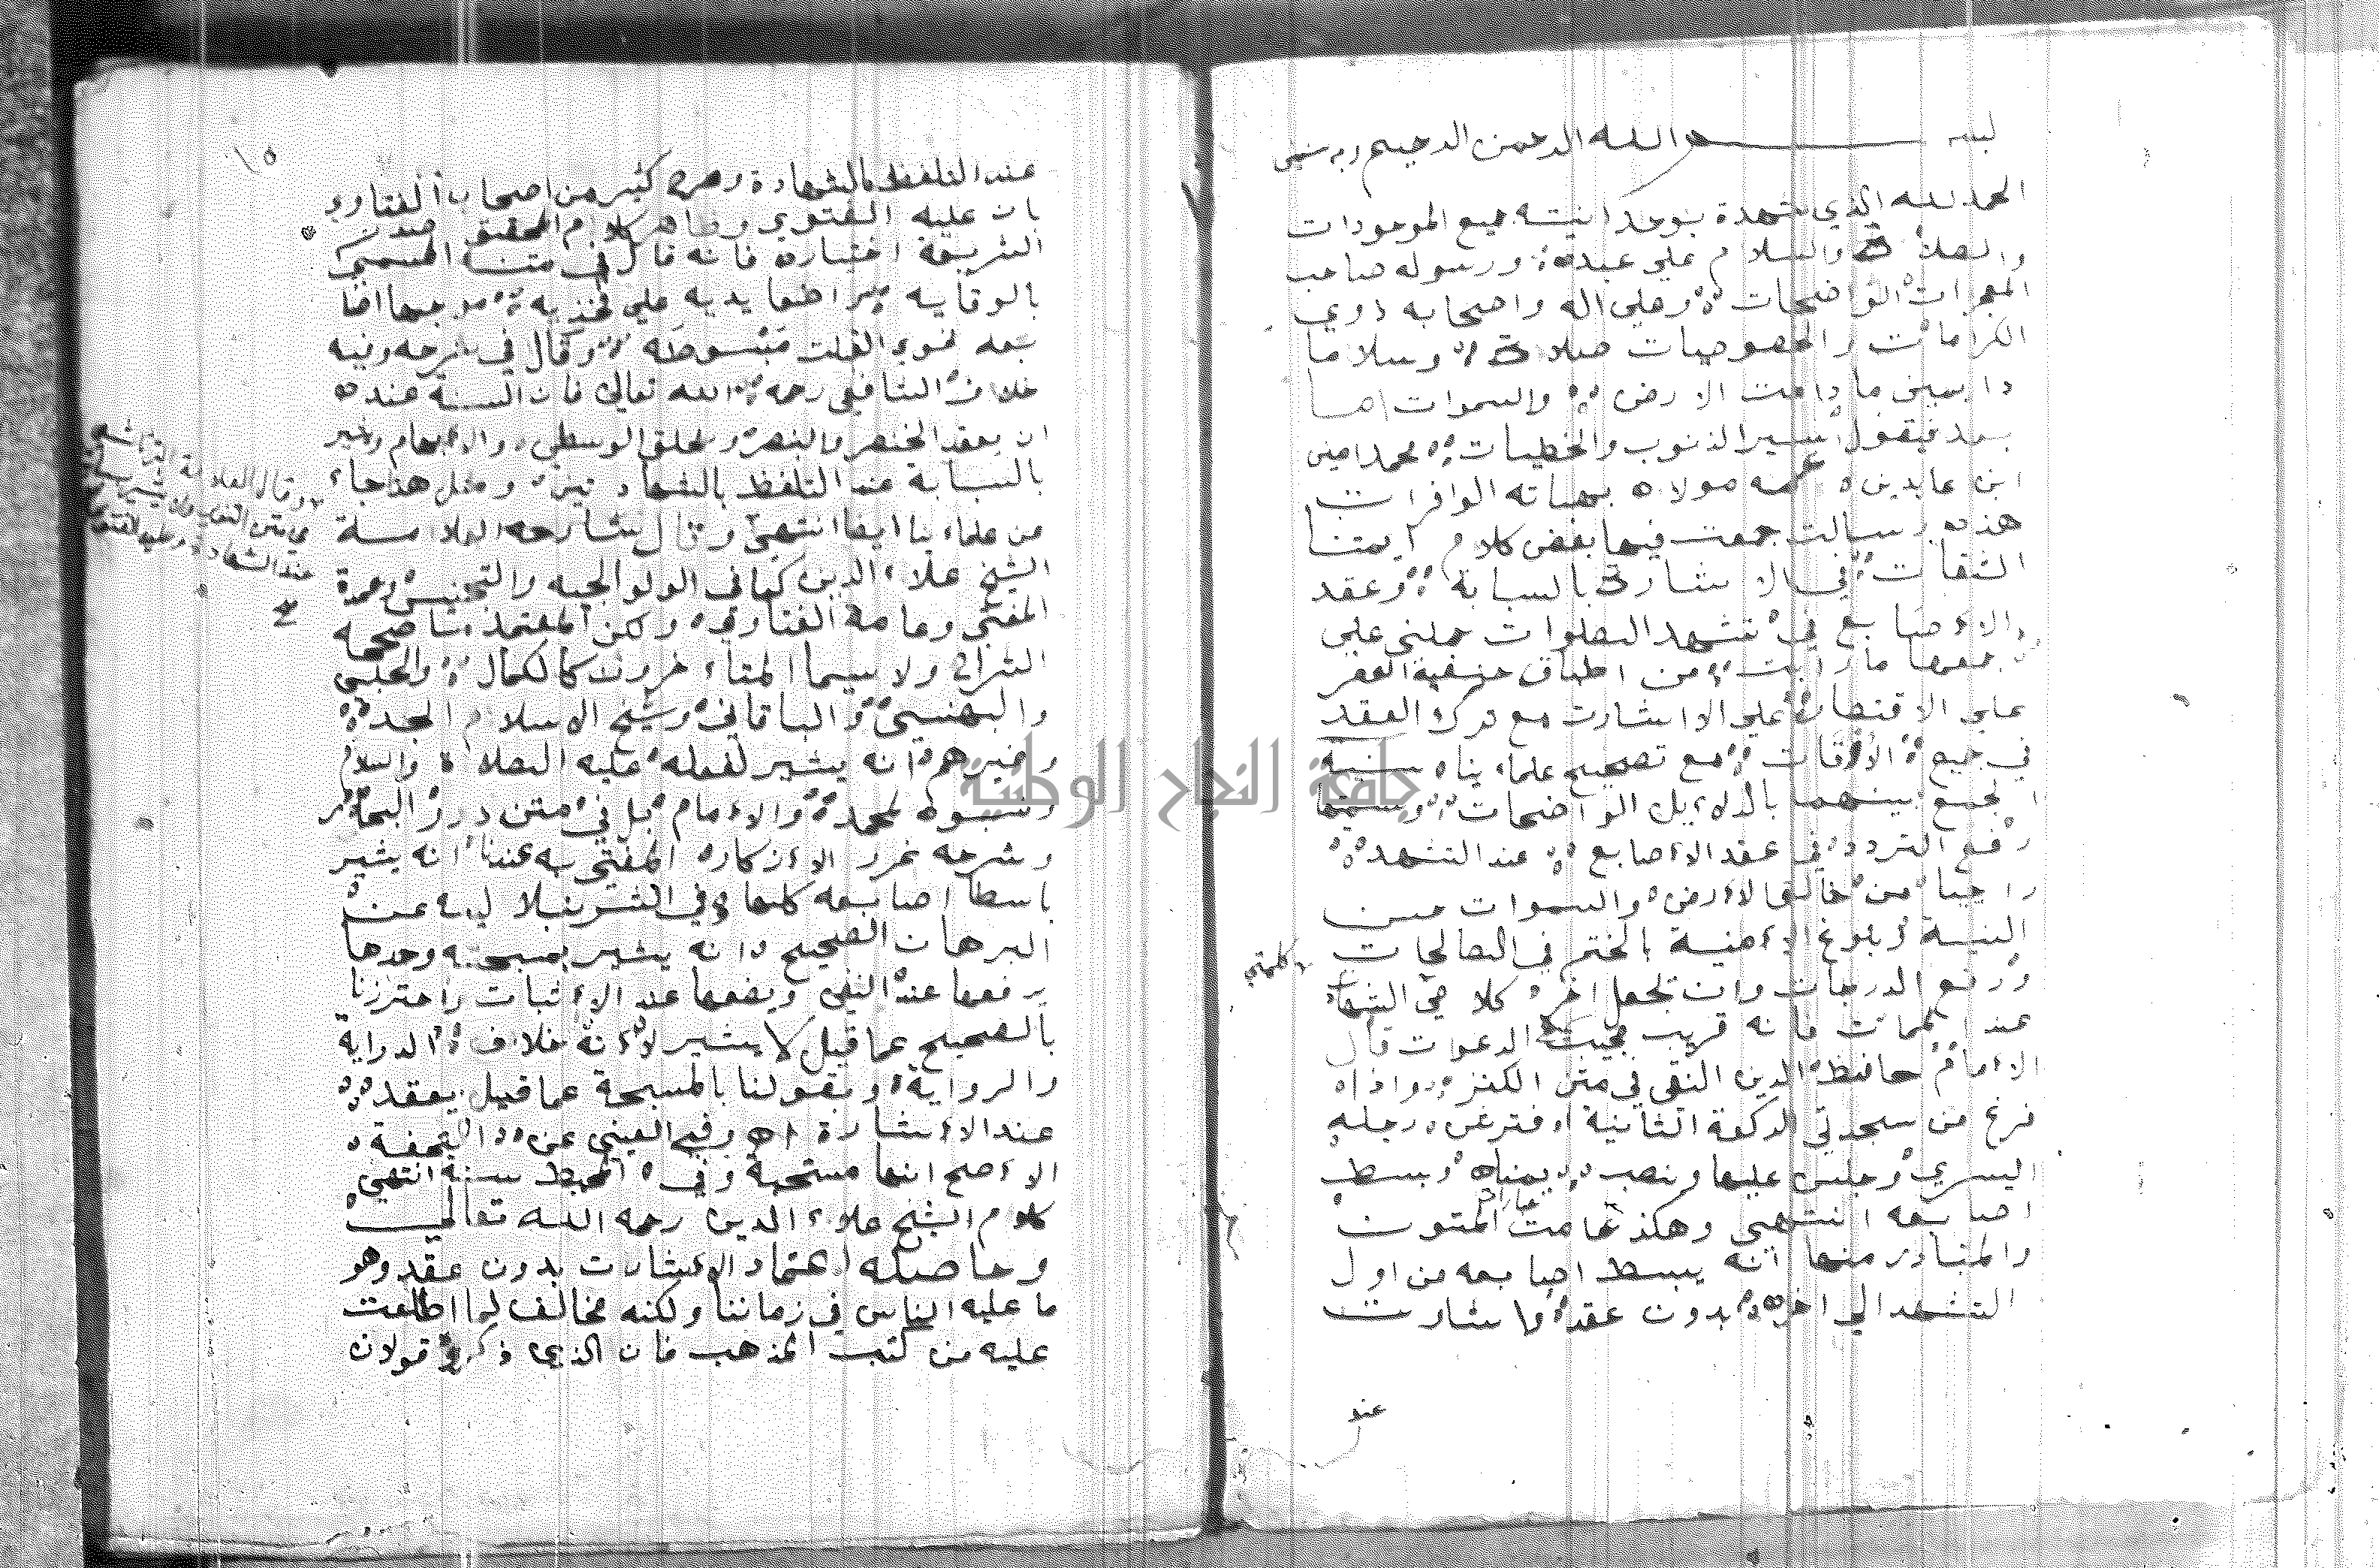 بسم الله الرحمن الرحيم وبه نستعين
الحمد لله الذي شهدة بوحدانيته جميع الموجودات
والصلاة والسلام علي عبده ورسوله صاحب
المعجزات الواضحات وعلي اله واصحابه ذوي
الكرامات والخصوصيات صلاة وسلاما
دايمين ما دامت الارض والسموات اما
بعد فيقول اسير الذنوب والخطيات محمد امين
ابن عابدين عمه مولاه بهباته الوافرات
هذه رسالت جمعت فيها بعض كلام ايمتنا
الثقات في الاشارة بالسبابة وعقد
الاصابع في تشهد الصلوات حملني علي
جمعها ما رايت من اطباق حنفية العصر
علي الاقتصار علي الاشارت مع ترك العقد
في جميع الاوقات مع تصحيح علماءيناه سنية
الجمع بينهما بالدلايل الواضحات وسميتها
رفع التردد في عقد الاصابع عند التشهد
راجيا من خالق الارض والسموات حسن
النية وبلوغ الامنية بالختم في الصالحات
ورفع الدرجات وان يجعل اخر كلامي الشهاد
وكلمتي
عند الممات فانه قريب مجيب الدعوات قال
الامام حافظ الدين النسفي في متن الكنز واذا
فرغ من سجدتي الركعة الثانية افترش رجله
اليسري وجلس عليها ونصب يمناه وبسط
اصابعه انتهي وهكذ عامت عبارات المتون
والمتبادر منها انه يبسط اصابعه من اول
التشهد الي اخره بدون عقد واشارت
عند
١٥
عند التلفظ بالشهادة وصرح كثير من اصحاب الفتاوي
بان عليه الفتوي وظاهر كلام المحقق صدر
الشريعة اختياره فانه قال في متنه المسمي
بالوقايه واضعا يديه علي فخذيه موجها اصا
بعه نحوي القبلت مبسوطه وقال في شرحه وفيه
خلاف الشافعي رحمه الله تعالي فان السنة عنده
ان يعقد الخنصر والبنصر ويحلق الوسطي والابهام ويشير
بالسبابة عند التلفظ بالشهادتين ومثل هذا جاء
من علماءينا ايضا انتهي وقال شارحه العلامسة
الشيخ علاء الدين كما في الولوالجيه والتجنيس وعمدة
المفتي وعامة الفتاوي ولكن المعتمد ما صححه
الشراح ولا سيما المتاءخرون كالكمال والحلبي
والبهنسي والباقاني وشيخ الاسلام الجد
وغيرهم انه يشير لفعله عليه الصلاة والسلام
ونسبوه لمحمد والامام بل في متن درر البحار
وشرحه غرر الاذكاره المفتي به عندنا انه يشير
باسطا اصابعه كلها وفي الشرنبلالية عن
البرهان الصحيح انه يشير بمسبحته وحدها
يرفعها عند النفي ويضعها عند الاثبات واحترزنا
بالصحيح عما قيل لا يشير لانه خلاف الدراية
والرواية وبقولنا بالمسبحة عما قيل يعقد
عند الاشارة اه وفي العيني عن التحفة
الاصح انها مستحبة وفي المحيط سنة انتهي
كلام الشيخ علاء الدين رحمه الله تعالي
وحاصله اعتماد الاشارت بدون عقد وهو
ما عليه الناس في زماننا ولكنه مخالف لما اطلعت
عليه من كتب المذهب فان الذي ذكروه قولان
وقال العلامة التمرتاشي
في متن التنوير ولا يشير بسبابته
عند الشهادة وعليه الفتوي
صح
جامعة النجاح الوطنية